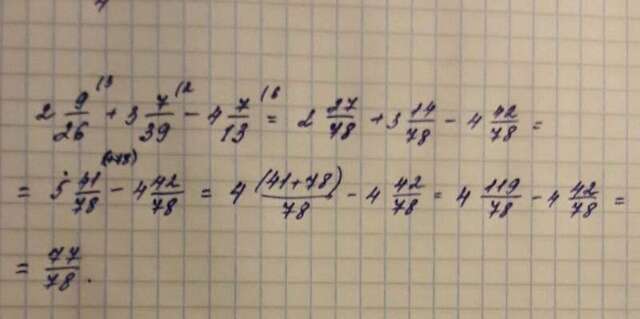 2 9/26 (3 + 3 7/39 (2 - 4 7/13 (6 = 2 27/78 + 3 14/78 - 4 42/78 =
= 5 41/78 (+78) - 4 42/78 = 4 (41+78)/78 - 4 42/78 = 4 119/78 - 4 42/78 =
= 77/78.